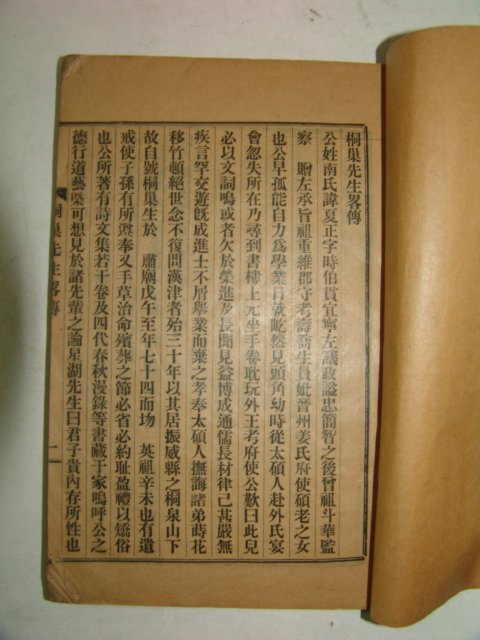 桐巢先生畧傳
公姓南氏諱夏正字時伯貫宜寧左議政謚忠簡智之後曾祖斗華監
察　贈左承旨祖重維郡守考壽喬生員妣晉州姜氏府使碩老之女
也公早孤能自力爲學業日號屹然見頭角幼時從太碩人赴外氏宴
會忽失所在乃尋到書樓上元坐手卷耽玩外王考府使公歎曰此兒
必以文詞鳴或者欠於榮進及長聞見益博成通儒長材律己甚嚴無
疾言罕交遊旣成進士不屑舉業而棄之孝奉太碩人撫誨諸弟蒔花
移竹頓絕世念不復問漢津者殆三十年以其居振威縣之桐泉山下
故自號桐巢生於　肅廟戊午至年七十四而圽　英祖辛未也有遺
戒使子孫有所遵奉又手草治命殯葬之節必省必約耻盈禮以矯俗
也公所著有詩文集若干卷及四代春秋漫錄等書藏于家嗚呼公之
德行道藝槩可想見於諸先輩之論星湖先生曰君子貴內存所性也
桐巢先生畧傳
一